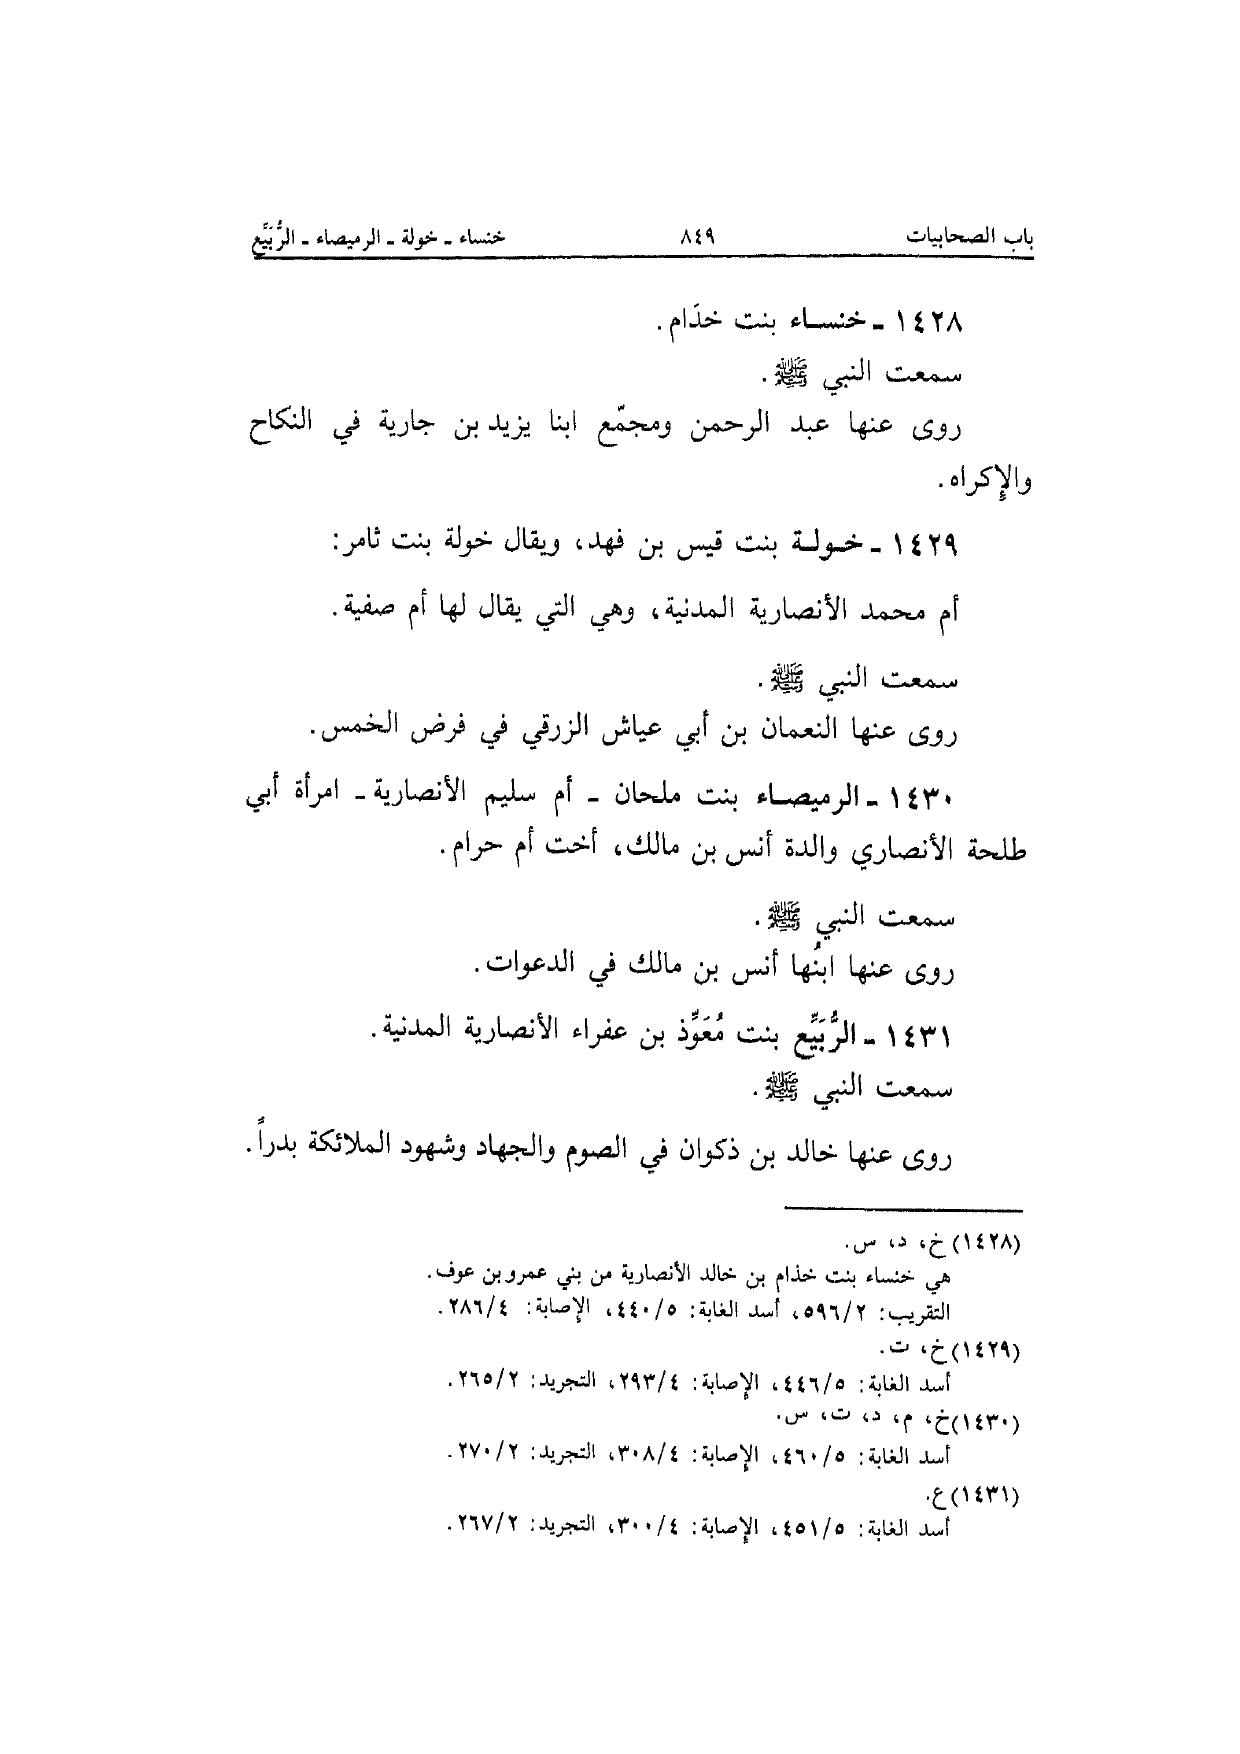 باب الصحابيات ٨٤٩ خنساء ـ خولة ـ الرميصاء ـ الرُّبَيَّع
١٤٢٨ ـ خنساء بنت خذَام.
سمعت النبي ﷺ.
روى عنها عبد الرحمن ومجمّع ابنا يزيد بن جارية في النكاح
والإكراه.
١٤٢٩ ـ خولة بنت قيس بن فهد، ويقال خولة بنت ثامر:
أم محمد الأنصارية المدنية، وهي التي يقال لها أم صفية.
سمعت النبي ﷺ.
روى عنها النعمان بن أبي عياش الزرقي في فرض الخمس.
١٤٣٠ ـ الرميصاء بنت ملحان ـ أم سليم الأنصارية ـ امرأة أبي
طلحة الأنصاري والدة أنس بن مالك، أخت أم حرام.
سمعت النبي ﷺ.
روى عنها ابنُها أنس بن مالك في الدعوات.
١٤٣١ ـ الرُّبَيِّع بنت مُعَوِّذ بن عفراء الأنصارية المدنية.
سمعت النبي ﷺ.
روى عنها خالد بن ذكوان في الصوم والجهاد وشهود الملائكة بدراً.
(١٤٢٨) خ، د، س.
هي خنساء بنت خذام بن خالد الأنصارية من بني عمرو بن عوف.
التقريب: ٥٩٦/٢، أسد الغابة: ٤٤٠/٥، الإصابة: ٢٨٦/٤.
(١٤٢٩) خ، ت.
أسد الغابة: ٤٤٦/٥، الإصابة: ٢٩٣/٤، التجريد: ٢٦٥/٢.
(١٤٣٠) خ، م، د، ت، س.
أسد الغابة: ٤٦٠/٥، الإصابة: ٣٠٨/٤، التجريد: ٢٧٠/٢.
(١٤٣١) ع.
أسد الغابة: ٤٥١/٥، الإصابة: ٣٠٠/٤، التجريد: ٢٦٧/٢.